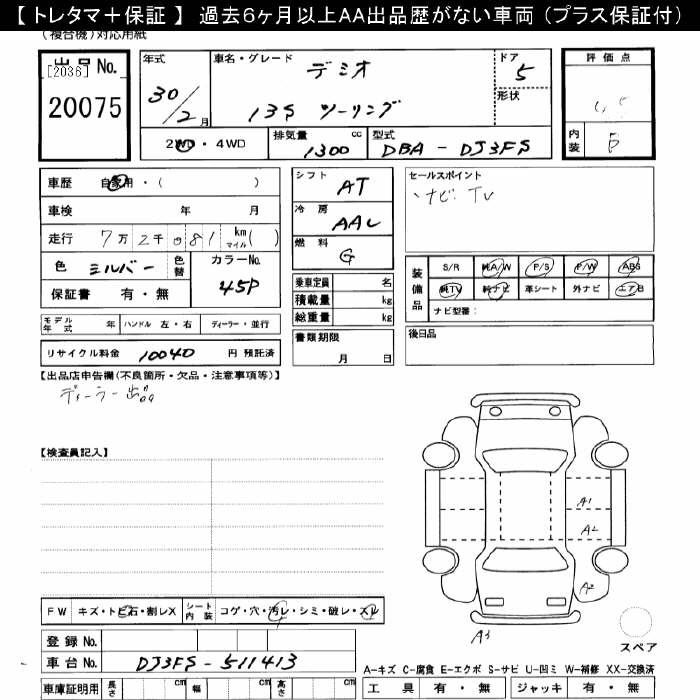 【 トレタマ＋保証 】 過去6ヶ月以上AA出品歴がない車両（プラス保証付）
（複合機）対応用紙
出品 No. [2036] 20075
年式 30/2月
車名・グレード デミオ 13S ツーリング
ドア 5
形状
評価点
内装 B
2WD・4WD
排気量 1300 cc
型式 DBA - DJ3FS
車歴 自家用・（ ）
車検 年 月
走行 7万2千081 km マイル( )
色 シルバー 色替
カラーNo. 45P
保証書 有・無
シフト AT
冷房 AAC
燃料 G
乗車定員 名
積載量 kg
総重量 kg
書類期限 月 日
セールスポイント
ナビ. TV
装備品
S/R 純A/W P/S P/W ABS
純TV 純ナビ 革シート 外ナビ エアB
ナビ型番：
後日品
モデル年式 年 ハンドル 左・右 ディーラー・並行
リサイクル料金 10040 円 預託済
【出品店申告欄(不良箇所・欠品・注意事項等)】
ディーラー出品
【検査員記入】
A1
A2
A2
A3
スペア
FW キズ・トビ石・割レX シート内装 コゲ・穴・汚レ・シミ・破レ・スレ
登録 No.
車台 No. DJ3FS - 511413
車庫証明用 長さ cm 幅 cm 高さ cm
A-キズ C-腐食 E-エクボ S-サビ U-凹ミ W-補修 XX-交換済
工具 有・無 ジャッキ 有・無